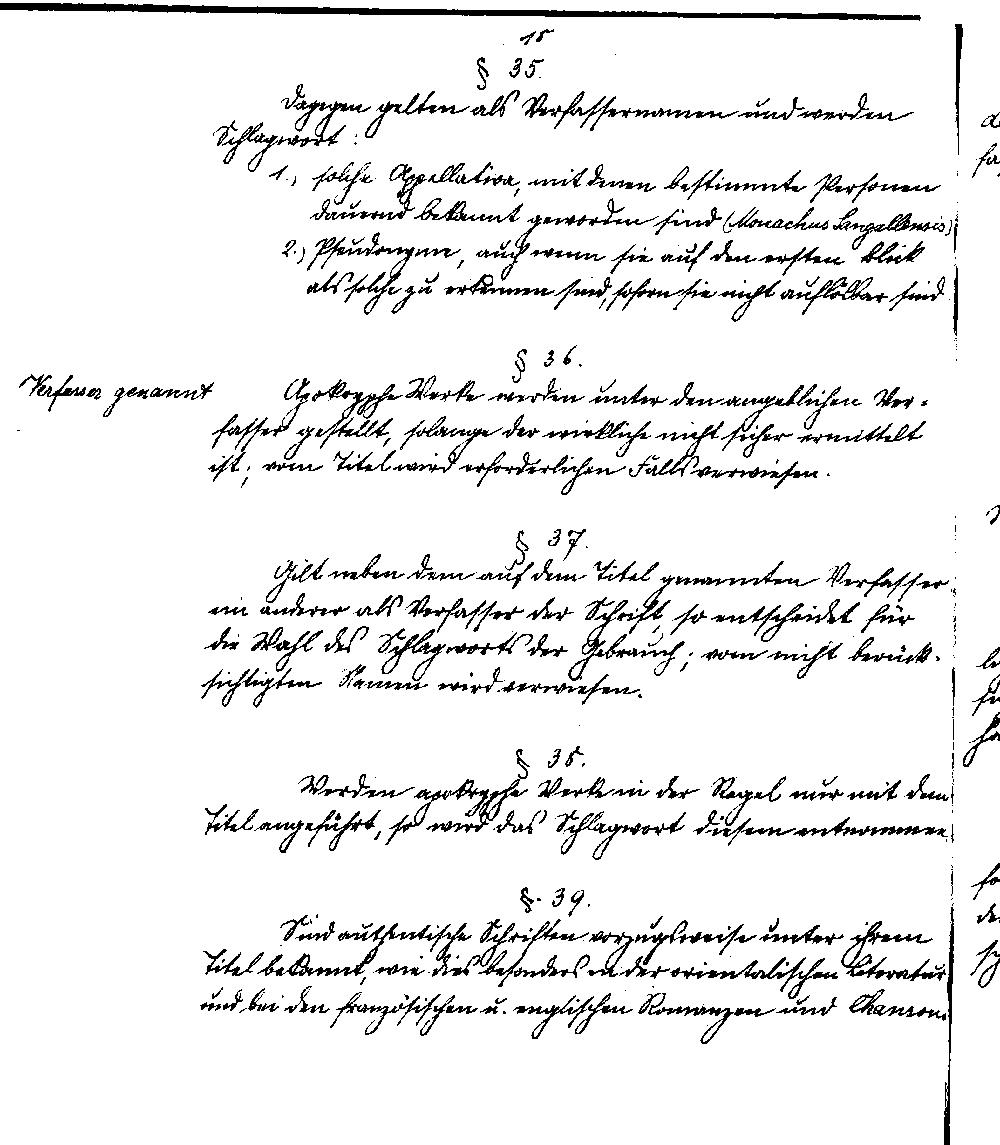 15
§ 35.
Dagegen gelten als Verfassernamen und werden
Schlagwort:
1., solche Appellativa, mit denen bestimmte Personen
dauernd bekannt geworden sind (Monachus Sangallensis)
2.) Pseudonyme, auch wenn sie auf den ersten Blick
als solche zu erkennen sind, sofern sie nicht auflösbar sind
§ 36.
Verfasser genannt
Apokryphe Werke werden unter den angeblichen Ver-
fasser gestellt, solange der wirkliche nicht sicher ermittelt
ist; vom Titel wird erforderlichen Falls verwiesen.
§ 37.
Gilt neben dem auf dem Titel genannten Verfasser
ein anderer als Verfasser der Schrift, so entscheidet für
die Wahl des Schlagworts der Gebrauch; vom nicht berück-
sichtigten Namen wird verwiesen.
§ 38.
Werden apokryphe Werke in der Regel nur mit dem
Titel angeführt, so wird das Schlagwort diesem entnommen
§. 39.
Sind authentische Schriften vorzugsweise unter ihrem
Titel bekannt, wie dies besonders in der orientalischen Literatur
und bei den französischen u. englischen Romanzen und Chansons